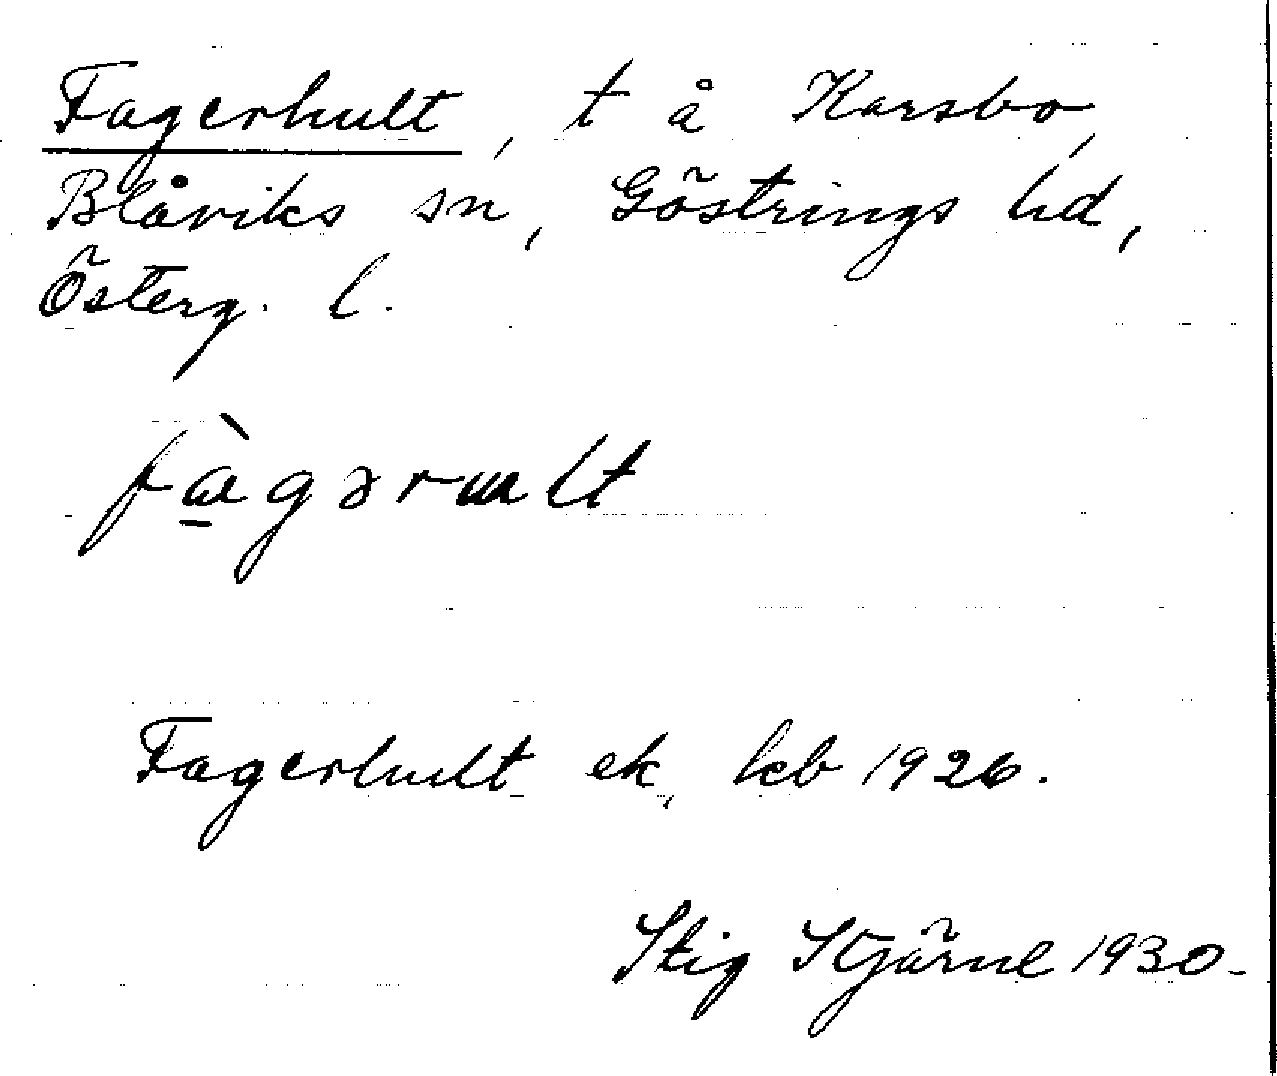 Fagerhult, t å Karsbo,
Blåviks sn, Göstrings hd,
Österg. l.
fàgərult
Fagerhult ek, kb 1926.
Stig Stjärne 1930.